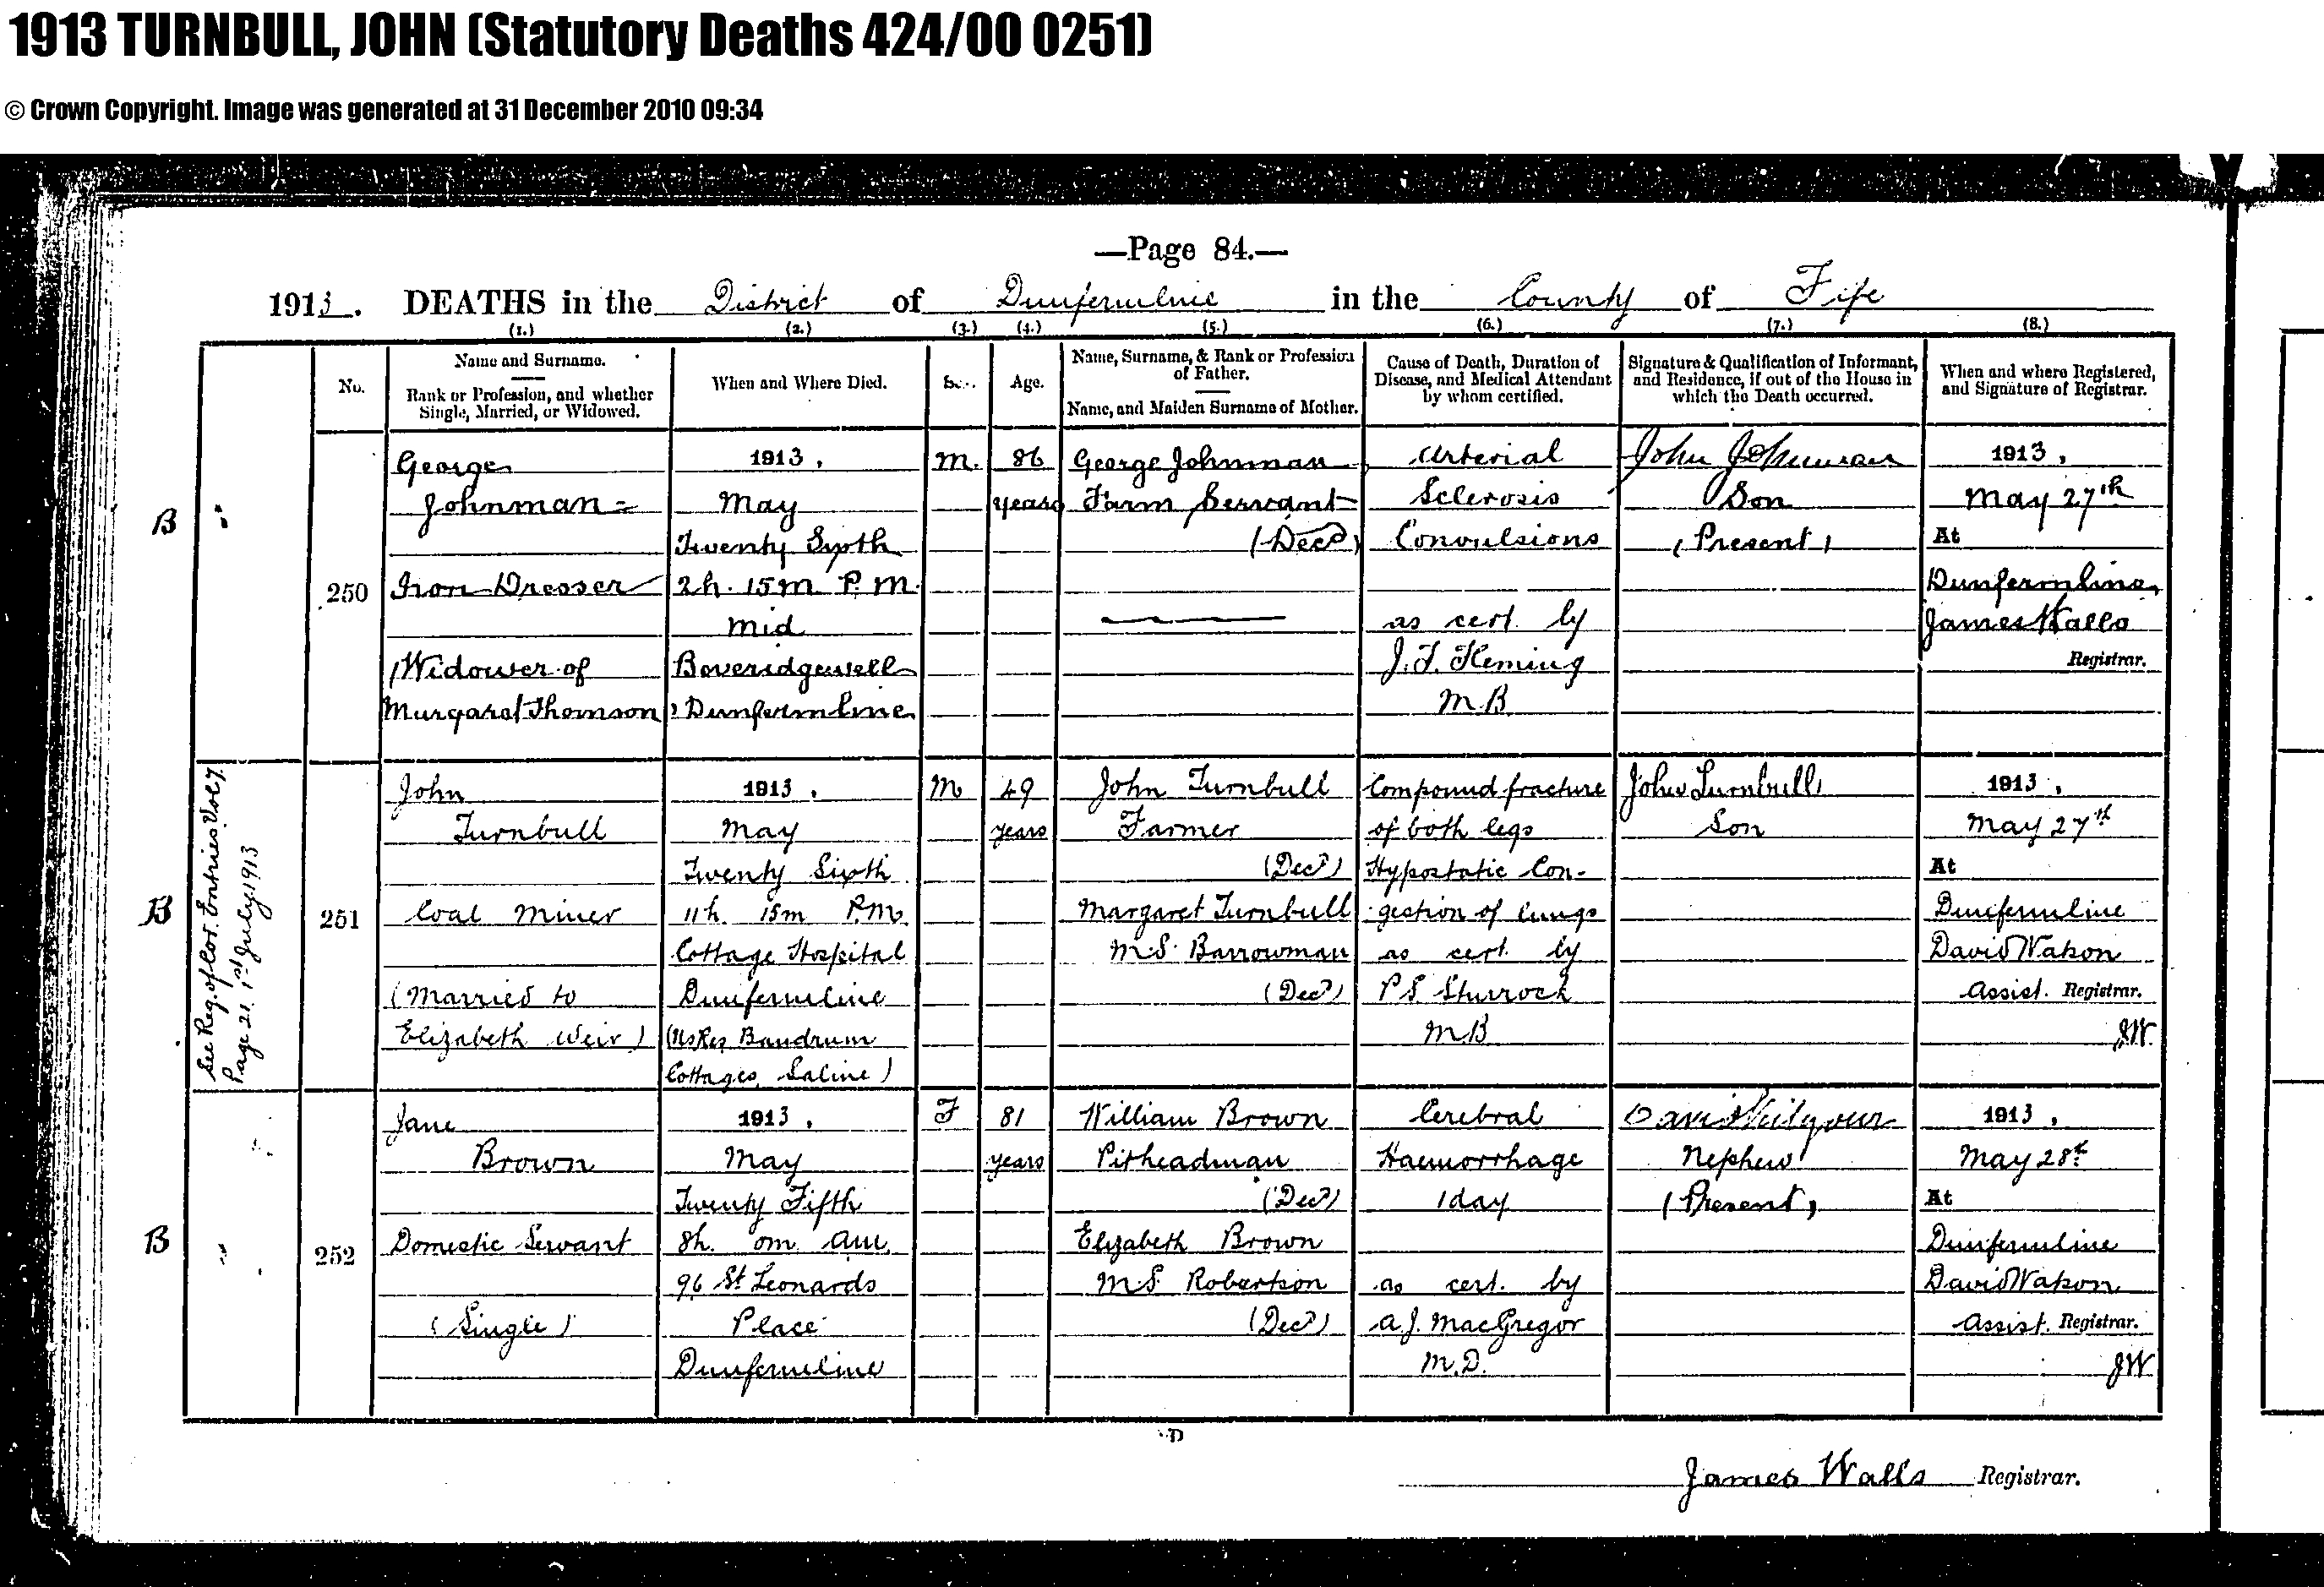 1913 TURNBULL, JOHN (Statutory Deaths 424/00 0251)
© Crown Copyright. Image was generated at 31 December 2010 09:34
—Page 84.—
1913. DEATHS in the District of Dunfermline in the County of Fife
(1.) (2.) (3.) (4.) (5.) (6.) (7.) (8.)
No.
Name and Surname.
Rank or Profession, and whether
Single, Married, or Widowed.
When and Where Died.
Age.
Name, Surname, & Rank or Profession
of Father.
Name, and Maiden Surname of Mother.
Cause of Death, Duration of
Disease, and Medical Attendant
by whom certified.
Signature & Qualification of Informant,
and Residence, if out of the House in
which the Death occurred.
When and where Registered,
and Signature of Registrar.
B
250
George
Johnman
Iron Dresser
(Widower of
Margaret Thomson)
1913.
May
Twenty Sixth
2h. 15m P.M.
Mid
Beveridgewell
Dunfermline
M.
86
years
George Johnman
Farm Servant
(Decd)
Arterial
Sclerosis
Convulsions
as cert. by
J. F. Fleming
M.B
John Johnman
Son
(Present)
1913.
May 27th
At
Dunfermline
James Walls
Registrar.
B
See Reg. of Cor. Entries Vol 7.
Page 21. 1st July 1913
251
John
Turnbull
Coal Miner
(Married to
Elizabeth Weir)
1913.
May
Twenty Sixth
11h. 15m P.M.
Cottage Hospital
Dunfermline
(Us Res Bandrum
Cottages, Saline)
M
49
years
John Turnbull
Farmer
(Decd)
Margaret Turnbull
M.S. Barrowman
(Decd)
Compound fracture
of both legs
Hypostatic Con-
gestion of lungs
as cert. by
P S Sturrock
M.B
John Turnbull
Son
1913.
May 27th
At
Dunfermline
David Watson
Assist. Registrar.
J.W.
B
252
Jane
Brown
Domestic Servant
(Single)
1913.
May
Twenty Fifth
8h. 0m AM.
96 St Leonards
Place
Dunfermline
F
81
years
William Brown
Pitheadman
(Decd)
Elizabeth Brown
M.S. Robertson
(Decd)
Cerebral
Haemorrhage
1 day
as cert. by
A.J. MacGregor
M.D.
David Kilgour
Nephew
(Present)
1913.
May 28th
At
Dunfermline
David Watson
Assist. Registrar.
JW
D
James Walls Registrar.